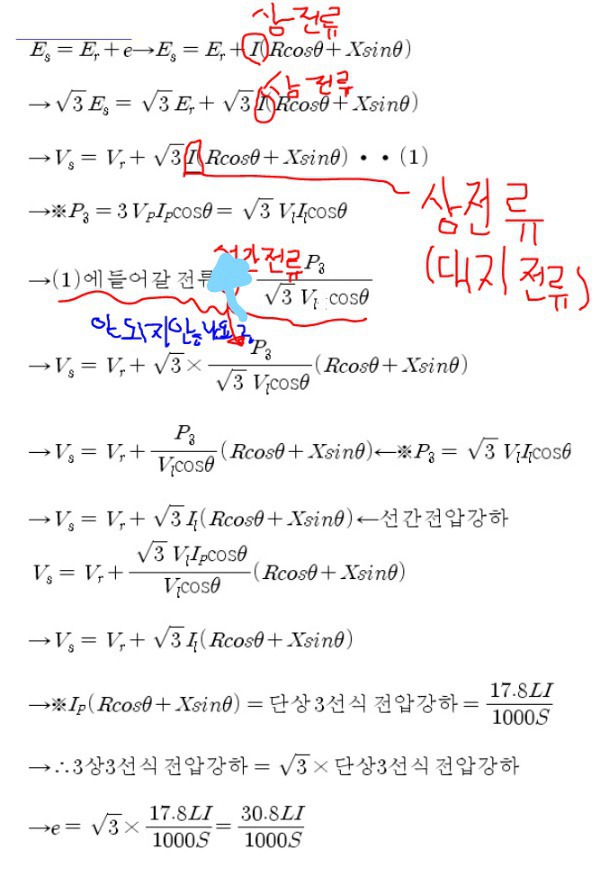 상전류
E_s = E_r + e → E_s = E_r + I(Rcosθ + Xsinθ)
상전류
→ √3 E_s = √3 E_r + √3 I(Rcosθ + Xsinθ)
→ V_s = V_r + √3 I(Rcosθ + Xsinθ) · · (1)
상전류
(대지전류)
→ ※P_3 = 3 V_P I_P cosθ = √3 V_l I_l cosθ
선간전류
→ (1)에 들어갈 전류 P_3 / (√3 V_l cosθ)
안되지않나요
→ V_s = V_r + √3 × P_3 / (√3 V_l cosθ) (Rcosθ + Xsinθ)
→ V_s = V_r + P_3 / (V_l cosθ) (Rcosθ + Xsinθ) ← ※P_3 = √3 V_l I_l cosθ
→ V_s = V_r + √3 I_l (Rcosθ + Xsinθ) ← 선간전압강하
V_s = V_r + (√3 V_l I_P cosθ) / (V_l cosθ) (Rcosθ + Xsinθ)
→ V_s = V_r + √3 I_l (Rcosθ + Xsinθ)
→ ※I_P (Rcosθ + Xsinθ) = 단상3선식 전압강하 = 17.8LI / 1000S
→ ∴3상3선식 전압강하 = √3 × 단상3선식 전압강하
→ e = √3 × 17.8LI / 1000S = 30.8LI / 1000S